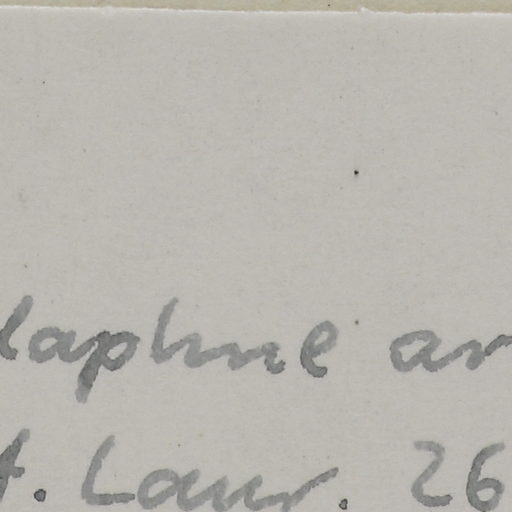 daphne ar
t. Laur. 26